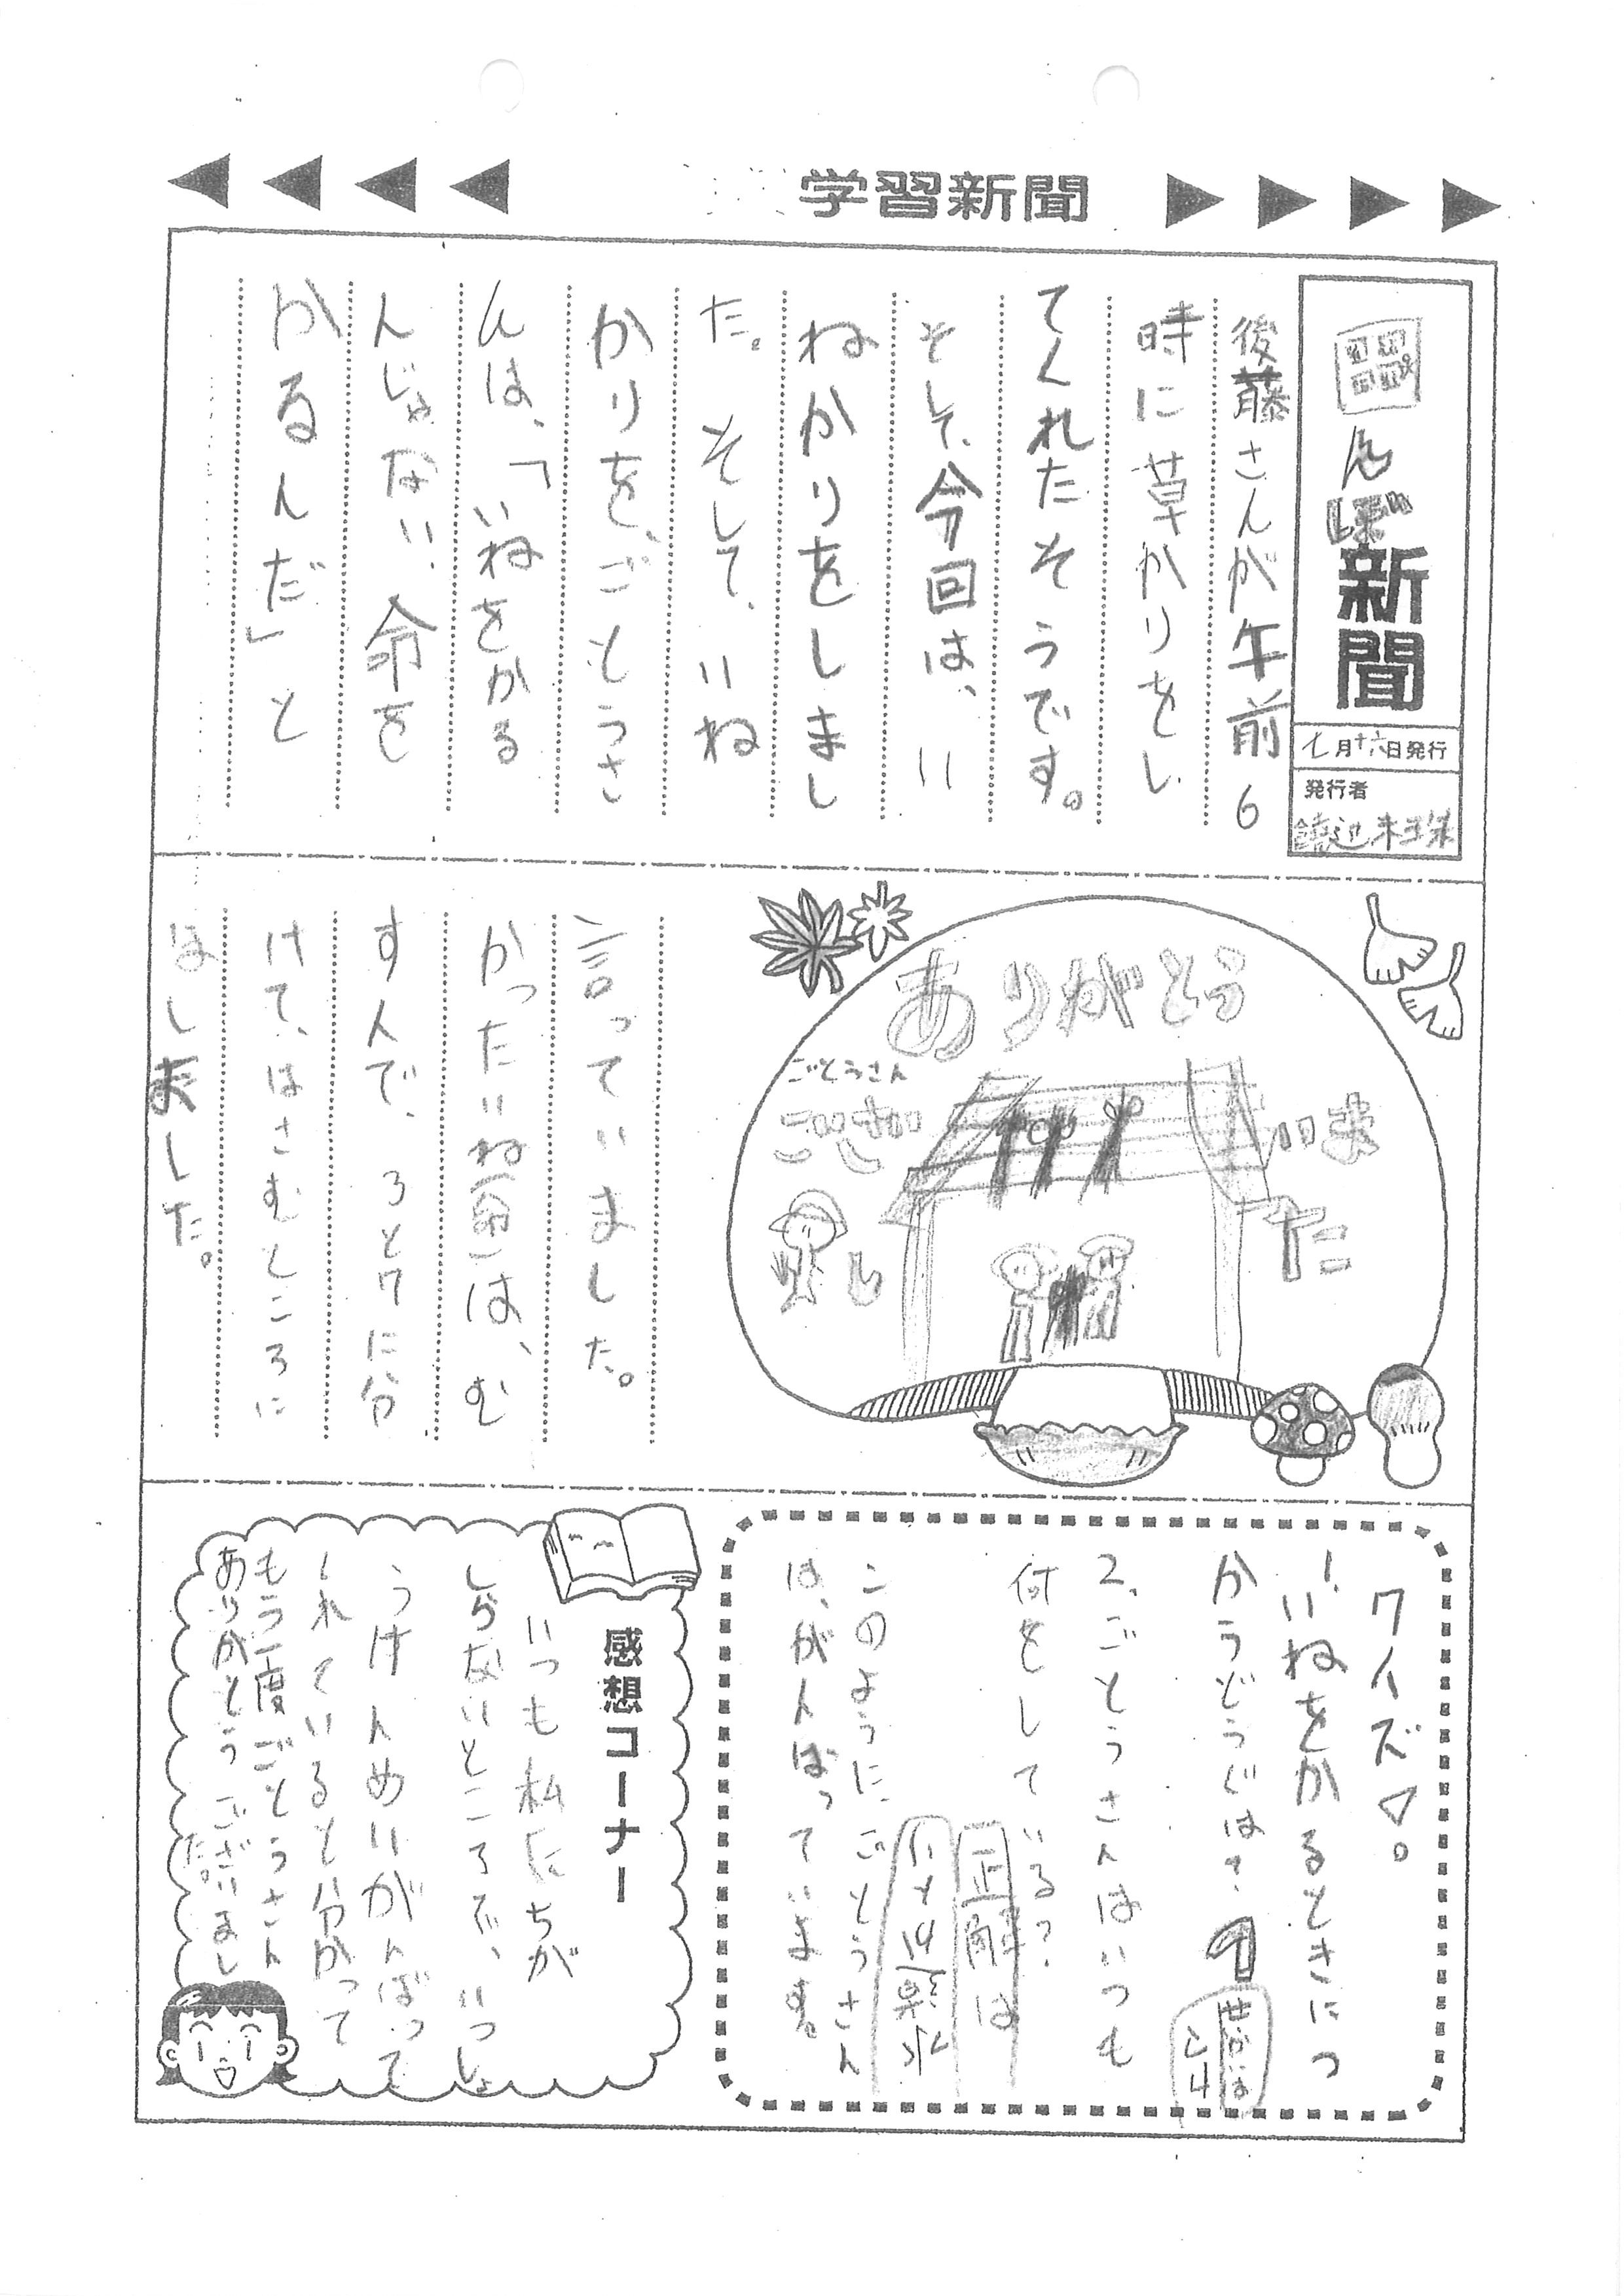 学習新聞
田んぼ新聞
七月十六日発行
発行者
後藤さんが午前6
時に草かりをし
てくれたそうです。
そして、今回は、い
ねかりをしまし
た。そして、いね
かりを、ごとうさ
んは、「いねをかる
んじゃない、命を
かるんだ」と
ありがとう
ごとうさん
ございました
言っていました。
かったいね(命)は、む
すんで、3と7に分
けて、はさむところに
ほしました。
クイズ
1.いねをかるときにつ
かうどうぐは?
せかいは
2.ごとうさんはいつも
何をしている?
正解は
このようにごとうさん
は、がんばっています。
感想コーナー
いつも私たちが
しらないところで、いっしょ
うけんめいがんばって
くれていると分かって
もう一度ごとうさん
ありがとうございまし
た。